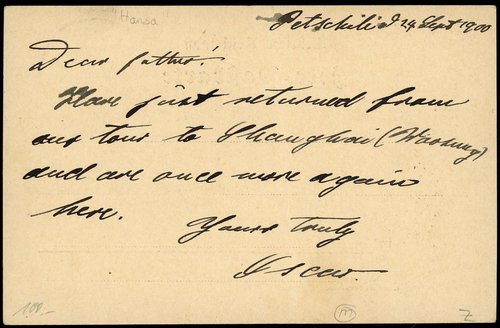 "Hansa"
Petschili d 24 Sept 1900
Dear father!
Have just returned from
our tour to Shanghai (Woosung)
and are once more again
here.
Yours truly
Oscar.
100.-
Z